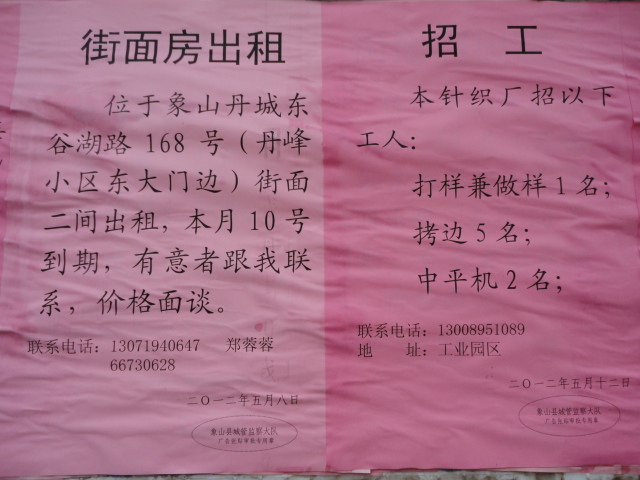 街面房出租
位于象山丹城东
谷湖路 168 号（丹峰
小区东大门边）街面
二间出租，本月 10 号
到期，有意者跟我联
系，价格面谈。
联系电话：13071940647 郑蓉蓉
66730628
二〇一二年五月八日
象山县城管监察大队
广告张贴审批专用章
招 工
本针织厂招以下
工人：
打样兼做样 1 名；
拷边 5 名；
中平机 2 名；
联系电话：13008951089
地 址：工业园区
二〇一二年五月十二日
象山县城管监察大队
广告张贴审批专用章